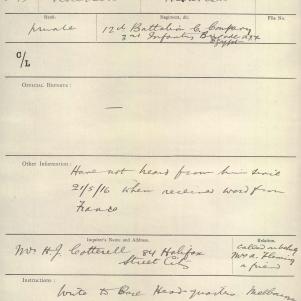 Rank. Regiment, &c. File No.
Private 12th Battalion C. Company
3rd Infantry Brigade
Egypt
C/L
OFFICIAL REPORTS:
—
Other Information:
Have not heard from him since
21/5/16 when received word from
France
Inquirer's Name and Address. Relation.
Mrs H.J. Cotterell 84 Halifax
Street City
Called
Mrs A. Fleming
a friend
Instructions:
Write to Base Headquarters Melbourne